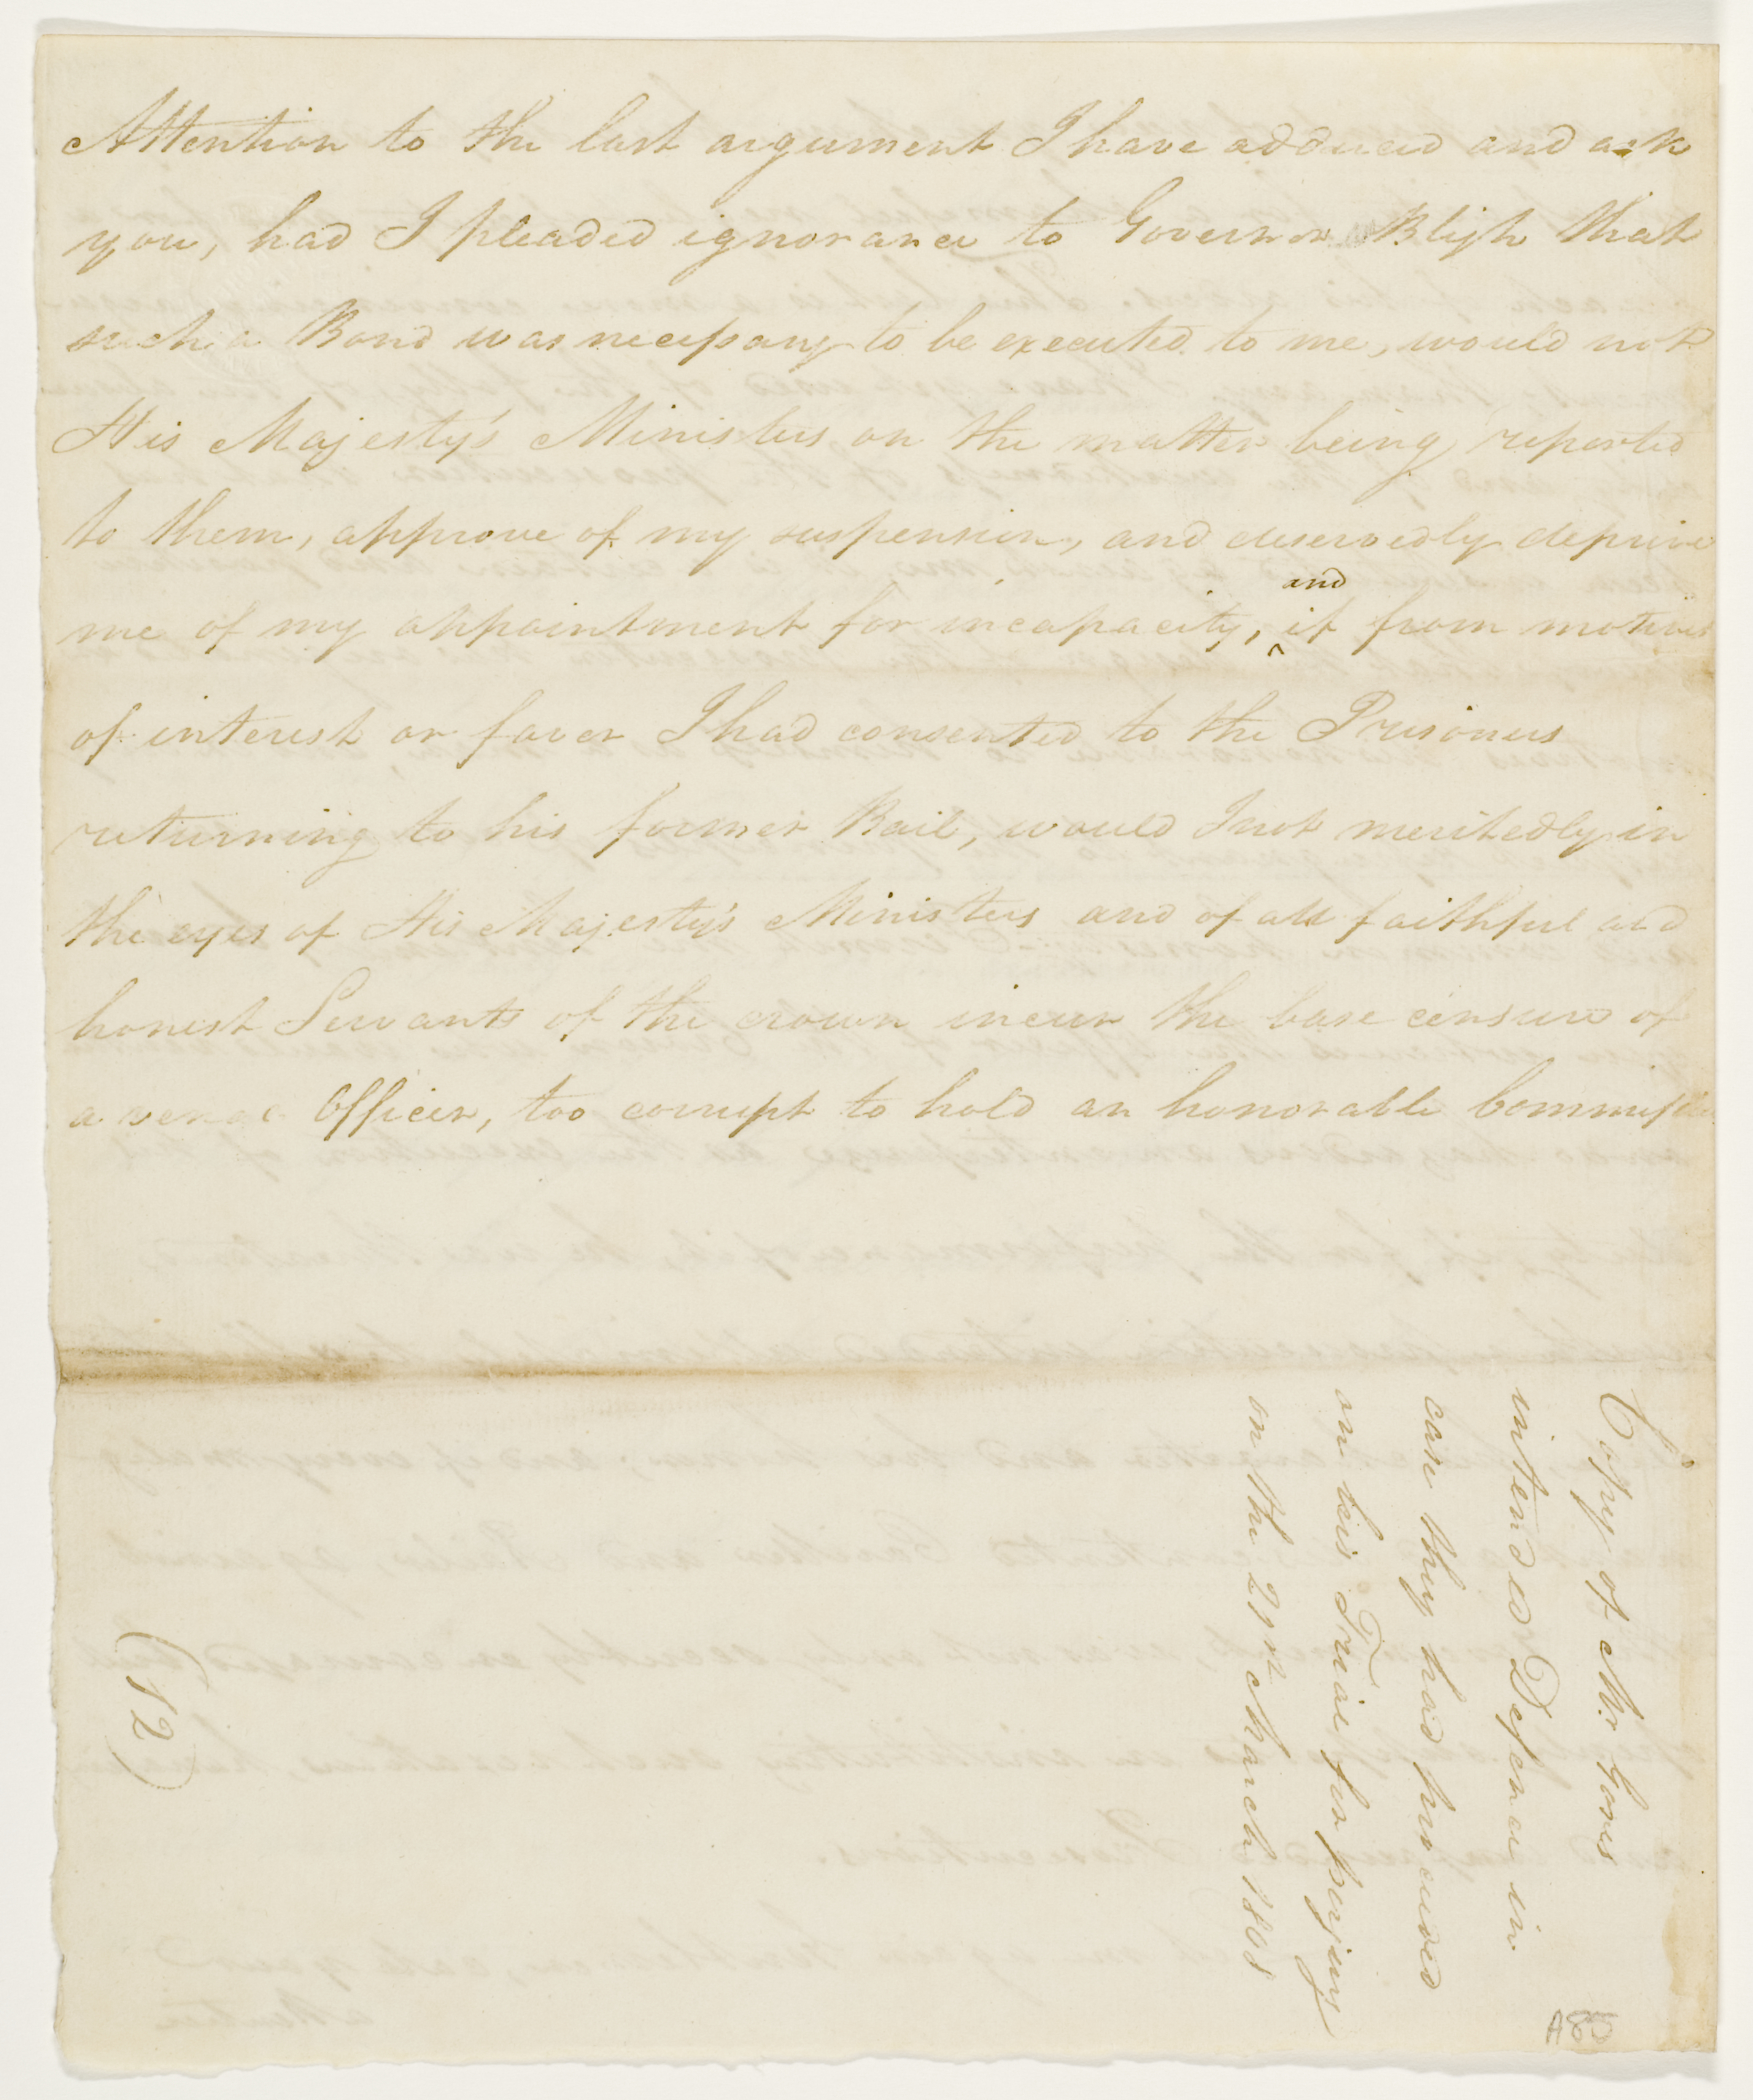 Attention to the last argument I have adduced and ask
you, had I pleaded ignorance to Governor Bligh that
such a Bond was necessary to be executed to me, would not
His Majesty's Ministers on the matter being reported
to them, approve of my suspension, and deservedly deprive
me of my appointment for incapacity, and if from motives
of interest or favor I had consented to the Prisoners
returning to his former Bail, would I not meritedly in
the eyes of His Majesty's Ministers and of all faithful and
honest Servants of the crown incur the base censure of
a venal Officer, too corrupt to hold an honorable Commission
Copy of Mr. Gores
intended Defence in
case they had proceeded
on his Trial for perjury
on the 21st March 1808
(12)
A85